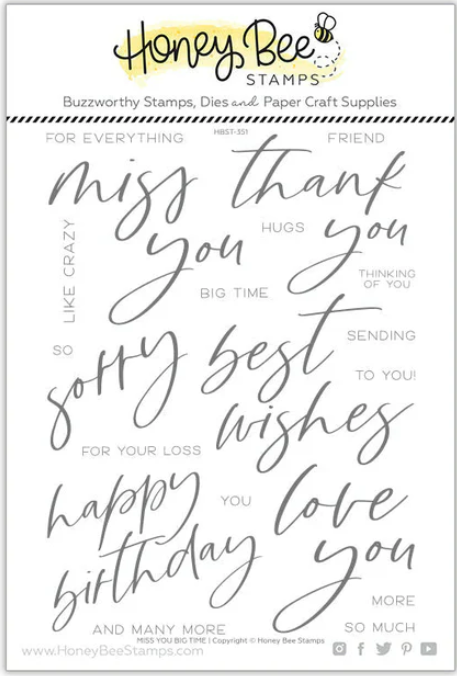 Honey Bee
STAMPS
Buzzworthy Stamps, Dies and Paper Craft Supplies
HBST-351
FOR EVERYTHING
FRIEND
miss
you
thank
you
HUGS
LIKE CRAZY
THINKING
OF YOU
BIG TIME
SENDING
SO
sorry
best
wishes
TO YOU!
FOR YOUR LOSS
happy
birthday
YOU
love
you
MORE
AND MANY MORE
SO MUCH
MISS YOU BIG TIME | Copyright © Honey Bee Stamps
www.HoneyBeeStamps.com